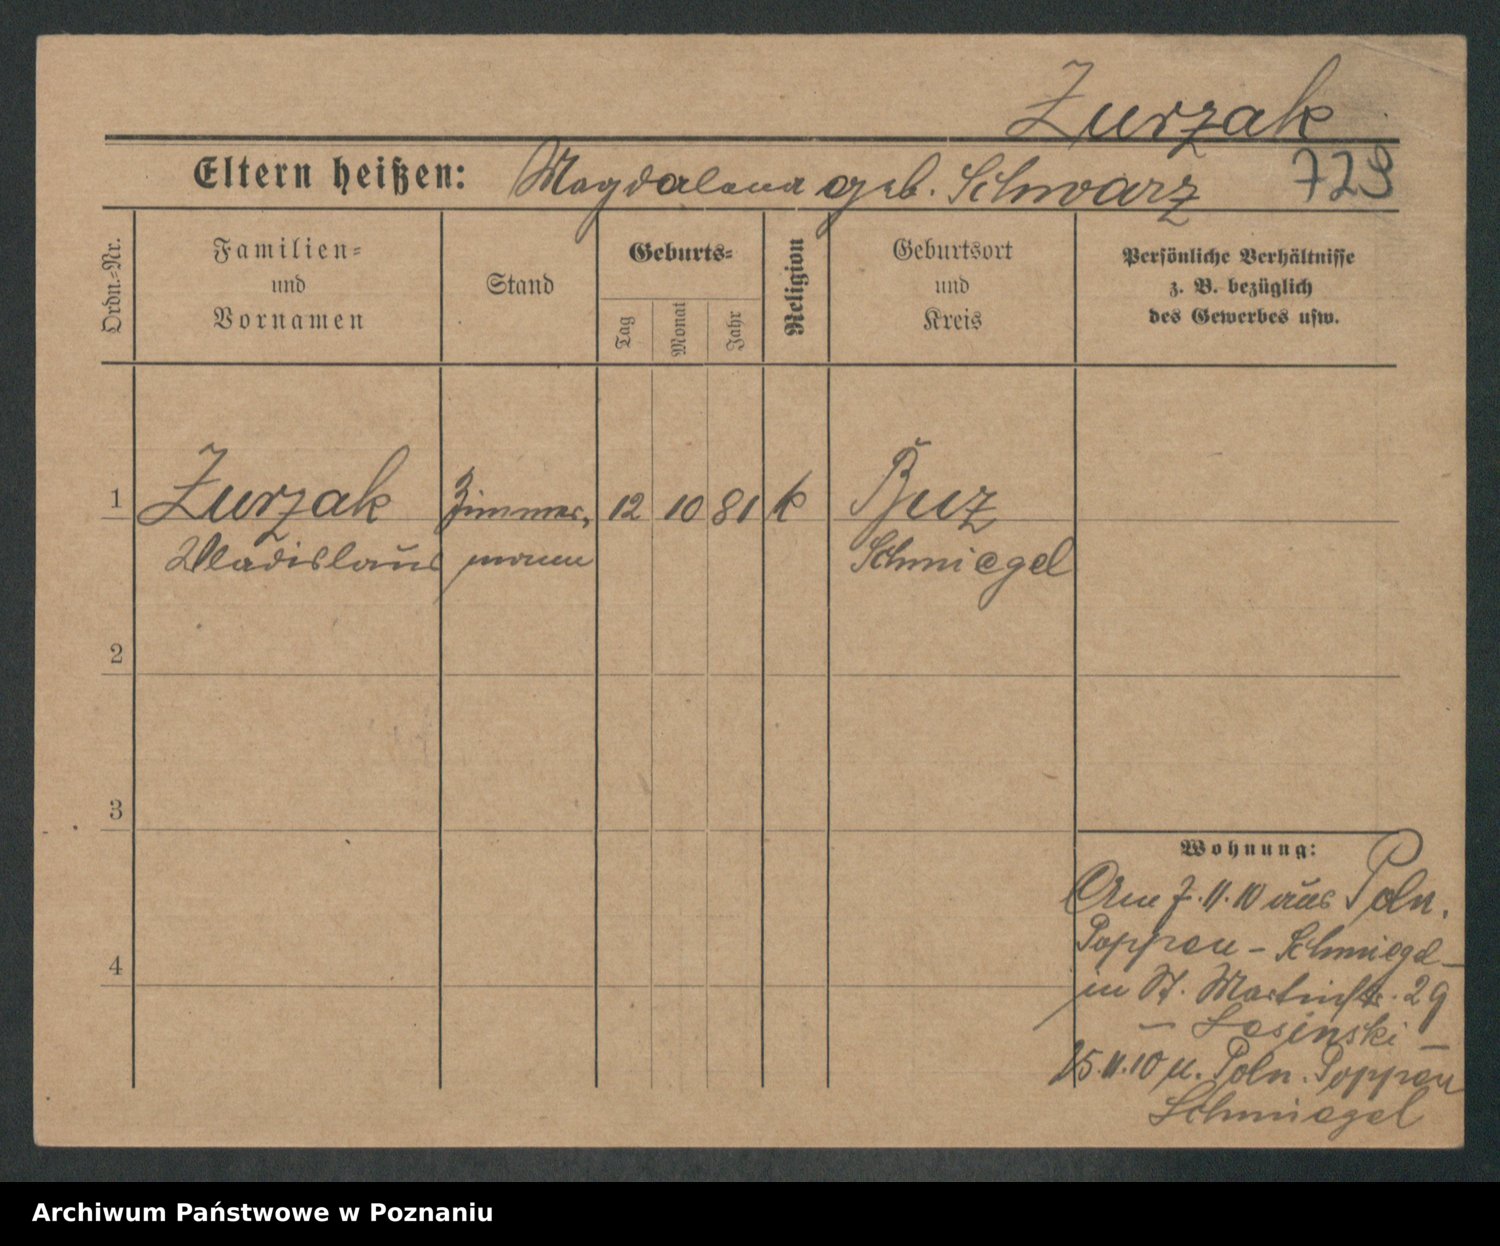 Zurzak
Eltern heißen: Magdalena geb. Schwarz 729
Ordn.-Nr.
Familien-
und
Vornamen
Stand
Geburts-
Tag
Monat
Jahr
Religion
Geburtsort
und
Kreis
Persönliche Verhältnisse
z. B. bezüglich
des Gewerbes usw.
1 Zurzak Zimmer, 12 10 81 k Bucz
Wladislaus mann Schmiegel
2
3
4
Wohnung:
Am 7.11.10 aus Poln.
Poppau - Schmiegel -
in St. Martinstr. 29
- Losinski -
15.11.10 n. Poln. Poppau
Schmiegel
Archiwum Państwowe w Poznaniu